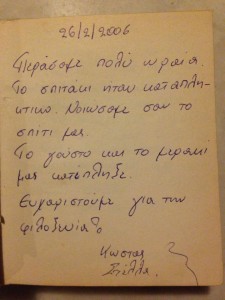 26/2/2006
Περάσαμε πολύ ωραία.
Το σπιτάκι ήταν καταπλη-
κτικό. Νοιώσαμε σαν το
σπίτι μας.
Το γούστο και το μεράκι
μας κατέπληξε.
Ευχαριστούμε για την
φιλοξενία!
Κώστας
Στέλλα